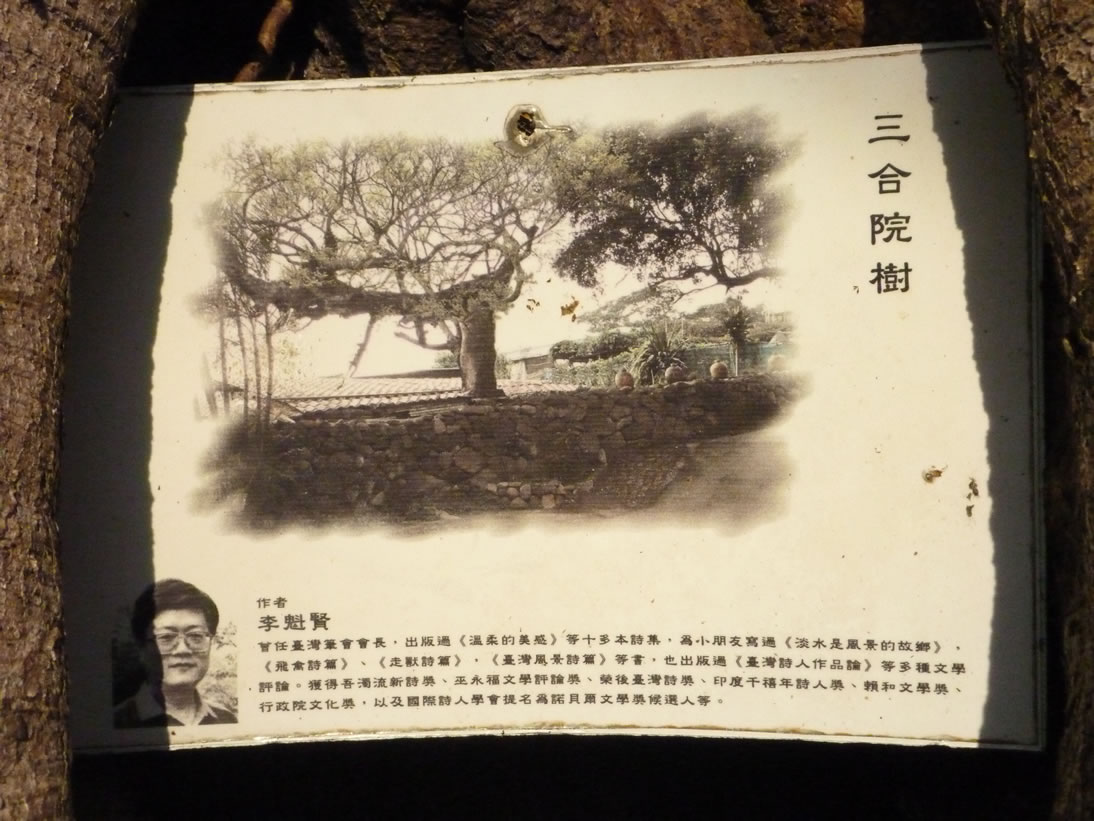 三合院樹
作者
李魁賢
曾任臺灣筆會會長，出版過《溫柔的美感》等十多本詩集，為小朋友寫過《淡水是風景的故鄉》，
《飛禽詩篇》、《走獸詩篇》，《臺灣風景詩篇》等書，也出版過《臺灣詩人作品論》等多種文學
評論。獲得吾濁流新詩獎、巫永福文學評論獎、榮後臺灣詩獎、印度千禧年詩人獎、賴和文學獎、
行政院文化獎，以及國際詩人學會提名為諾貝爾文學獎候選人等。